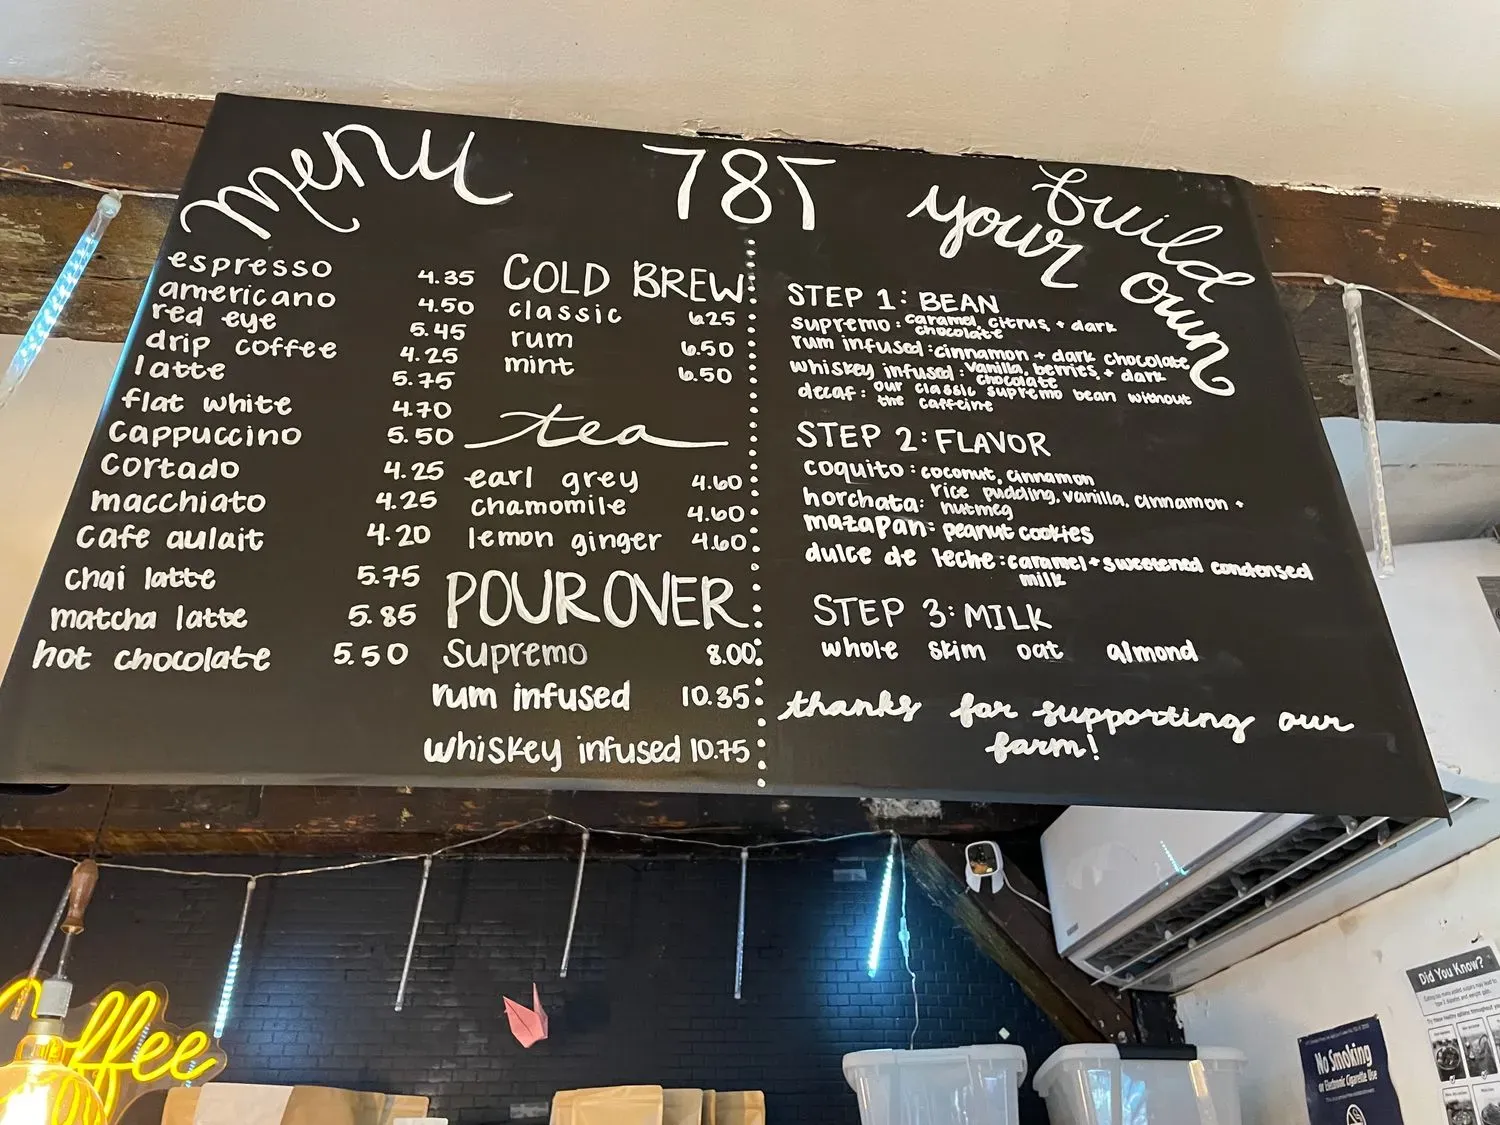 menu
785
build
your
own
espresso 4.35
americano 4.50
red eye 5.45
drip coffee 4.25
latte 5.75
flat white 4.70
cappuccino 5.50
cortado 4.25
macchiato 4.25
cafe aulait 4.20
chai latte 5.75
matcha latte 5.85
hot chocolate 5.50
COLD BREW
classic 6.25
rum 6.50
mint 6.50
tea
earl grey 4.60
chamomile 4.60
lemon ginger 4.60
POUR OVER
Supremo 8.00
rum infused 10.35
whiskey infused 10.75
STEP 1: BEAN
supremo: caramel, citrus, + dark
chocolate
rum infused: cinnamon + dark chocolate
whiskey infused: vanilla, berries, + dark
chocolate
decaf: our classic supremo bean without
the caffeine
STEP 2: FLAVOR
coquito: coconut, cinnamon
horchata: rice pudding, vanilla, cinnamon +
nutmeg
mazapan: peanut cookies
dulce de leche: caramel + sweetened condensed
milk
STEP 3: MILK
whole skim oat almond
thanks for supporting our
farm!
Coffee
Did You Know?
No Smoking
or Electronic Cigarette Use